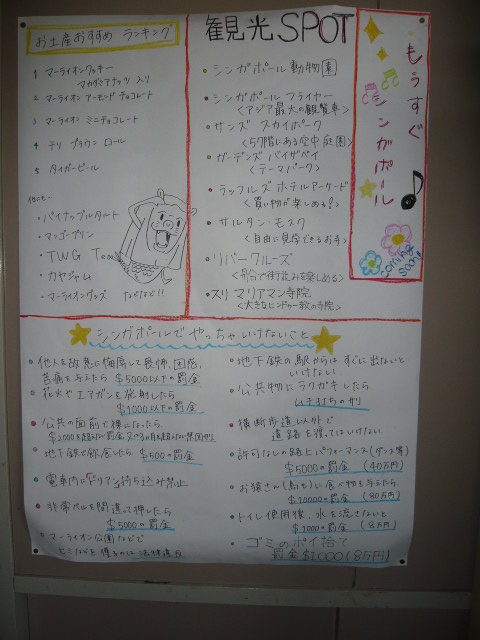 お土産おすすめ ランキング
1 マーライオンクッキー
マカダミアナッツ 入り
2 マーライオン アーモンド チョコレート
3 マーライオン ミニチョコレート
4 チリ プラウン ロール
5 タイガービール
他にも…
・パイナップルタルト
・マンゴープリン
・TWG Tea
・カヤジャム
・マーライオングッズ などなど!!
観光SPOT
・シンガポール動物園
・シンガポール フライヤー
<アジア最大の観覧車>
・サンズ スカイパーク
<57階にある空中庭園>
・ガーデンズ バイザベイ
<テーマパーク>
・ラッフルズ ホテルアーケード
<買い物が楽しめる?>
・サルタン・モスク
<自由に見学できるお寺>
・リバークルーズ
<舟で街並みを楽しめる>
・スリ マリアマン寺院
<大きなヒンドゥー教の寺院>
もうすぐ
シンガポール
coming
soon!
シンガポールで やっちゃいけないこと
・他人を故意に侮辱して畏怖、困惑、
苦痛を与えたら $5000以下の罰金
・花火やエアガンを発射したら
$1000以下の罰金
・公共の面前で裸になったら
・地下鉄で飲食したら $500の罰金
・電車内にドリアン持ち込み禁止
・非常ベルを間違って押したら
$5000の罰金
・マーライオン公園などで
セミなどを獲るのは 法律違反
・地下鉄の駅からは すぐに出ないと
いけない
・公共物にラクガキしたら
ムチ打ちの刑
・横断歩道以外で
道路を渡ってはいけない
・許可なしの路上パフォーマンス(ダンス等)
$5000の罰金 (40万円)
・お猿さん(鳥も)に食べ物を与えたら
$10000の罰金 (80万円)
・トイレ使用後、水を流さないと
$1000の罰金 (8万円)
・ゴミのポイ捨て
罰金$1000(85円)